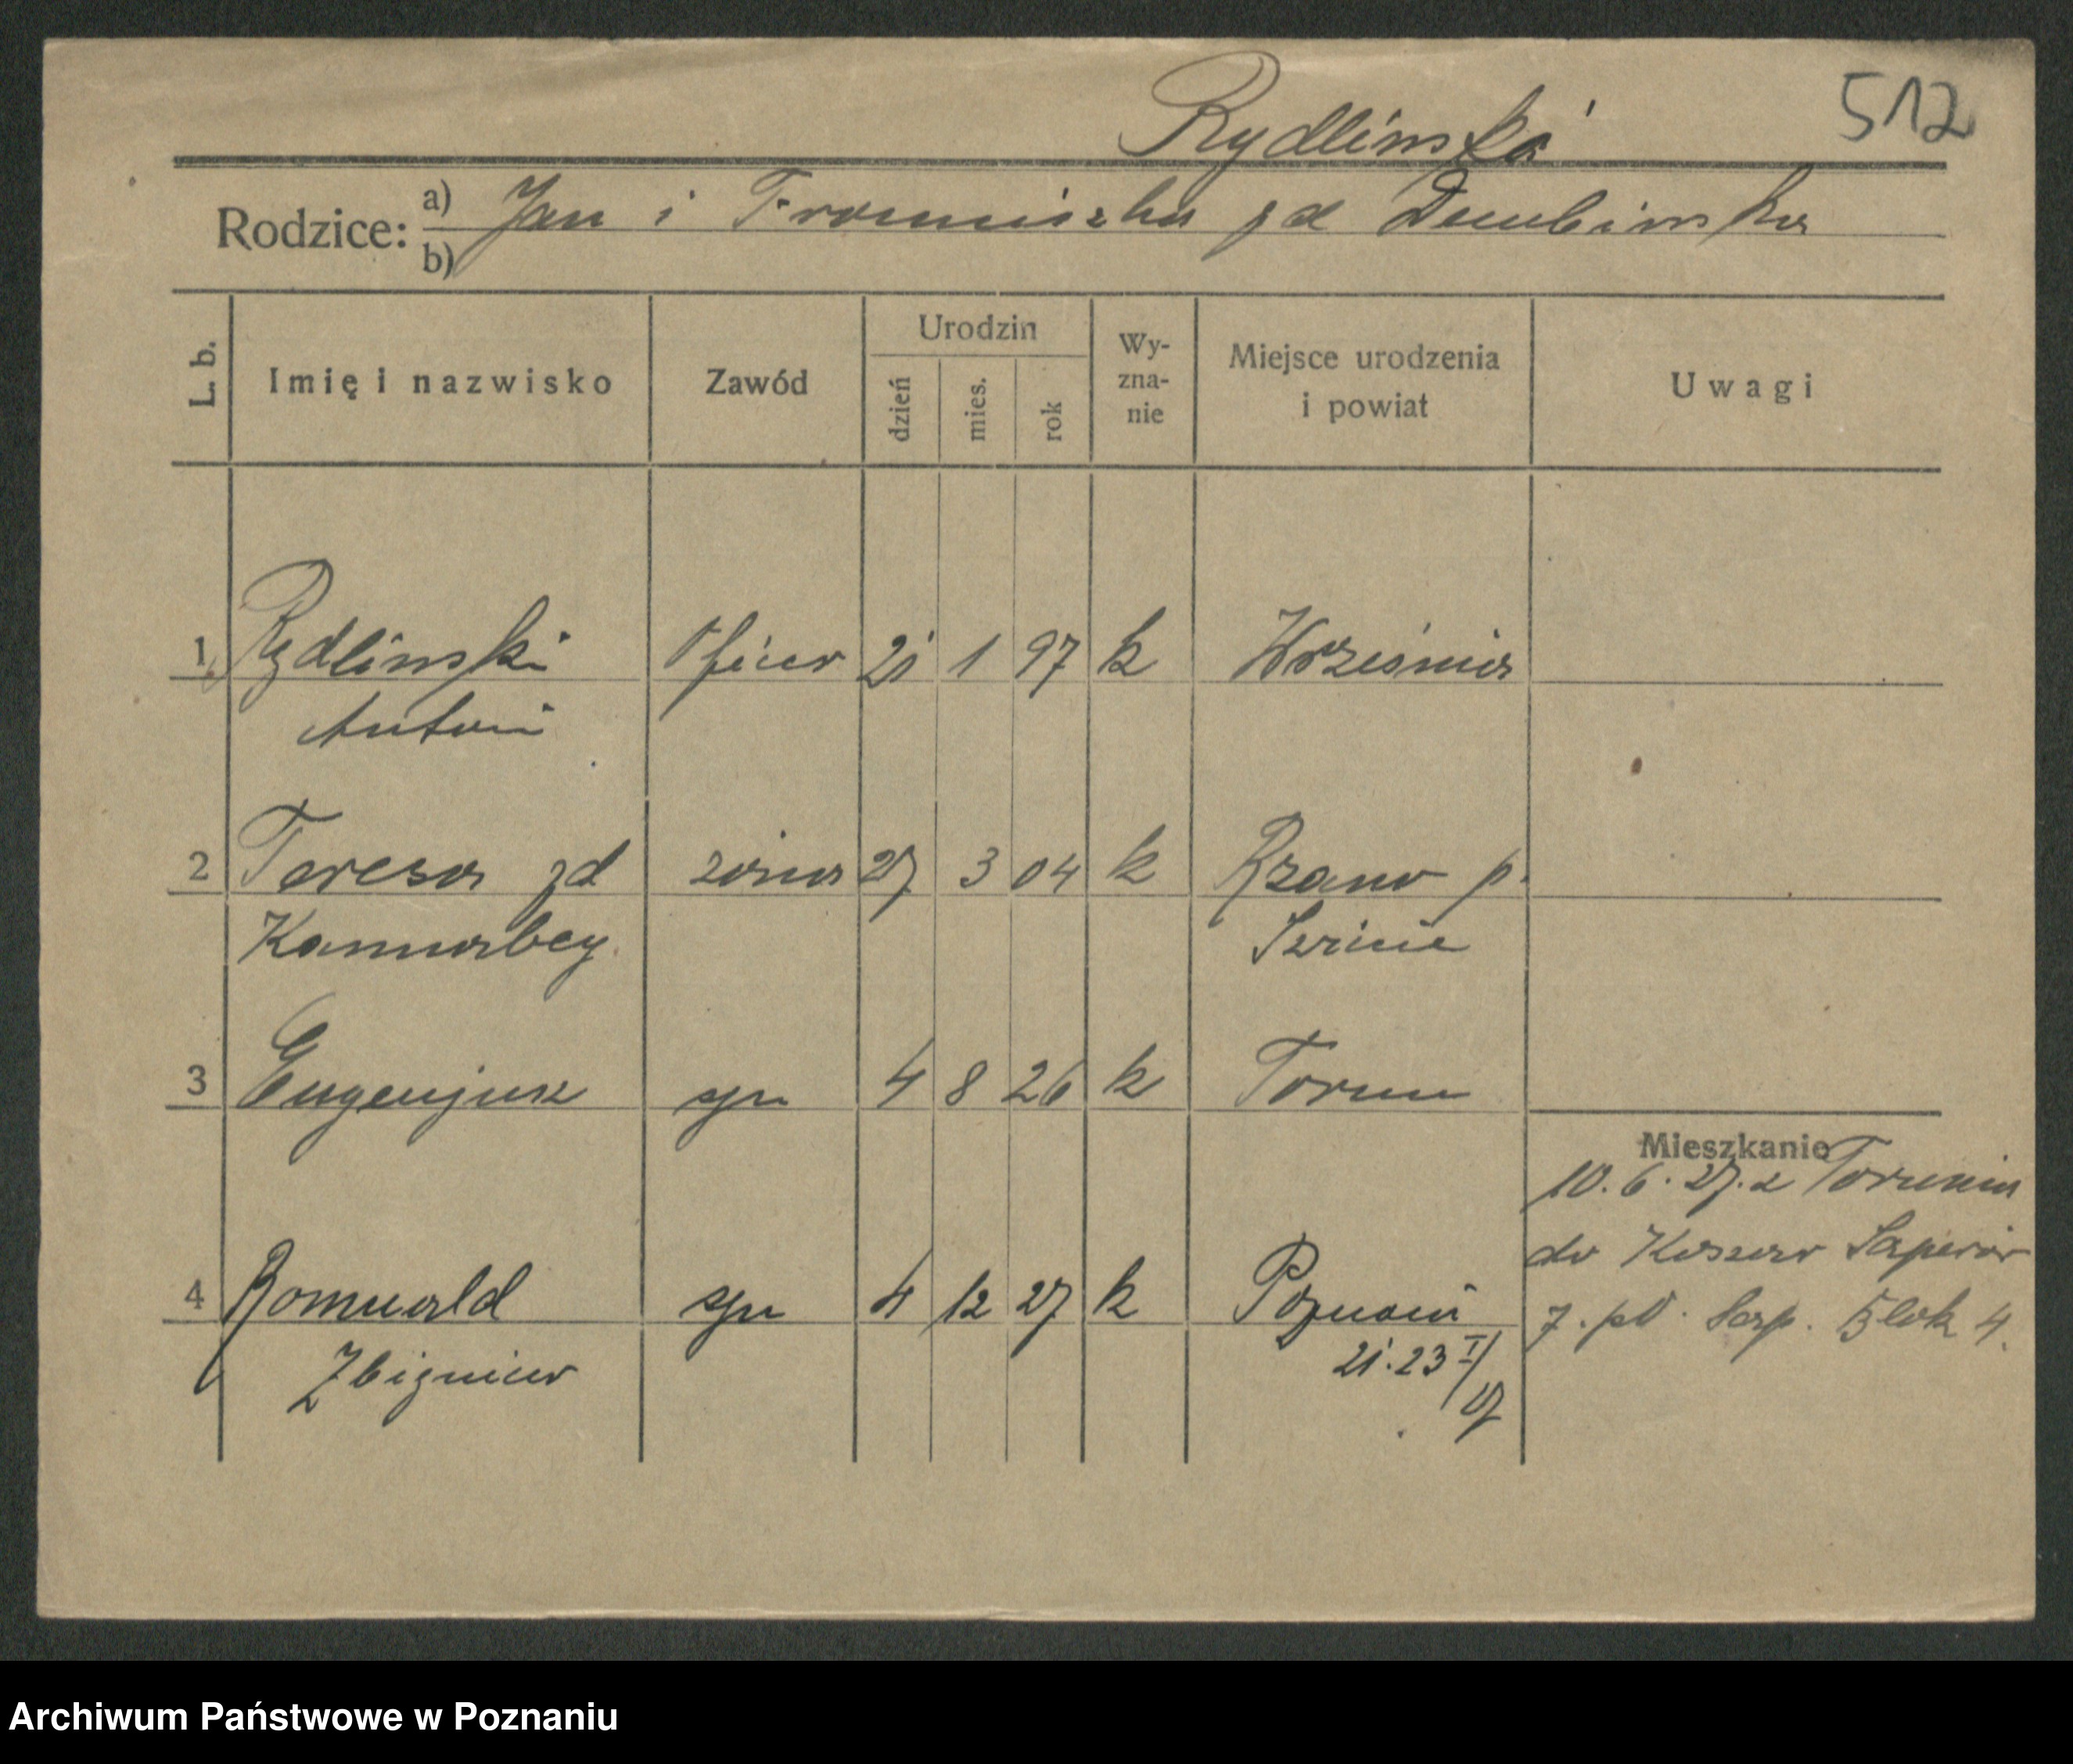 512
Rydlinska
Rodzice: a) Jan i Franciszka zd Dembinska
b)
L. b. Imię i nazwisko Zawód Urodzin dzień mies. rok Wy-zna-nie Miejsce urodzenia i powiat Uwagi
1 Rydlinski oficer 21 1 97 k Września
Antoni
2 Teresa zd żona 27 3 04 k p.
Kannabey
3 Eugenjusz syn 4 8 26 k Torun
Mieszkanie
10. 6. 27. z Torunia
do Koszar Saperów
4 Romuald syn 4 12 27 k Poznań 7. pł. Sap. Blok 4.
Zbigniew 21. 23 I/
27
Archiwum Państwowe w Poznaniu